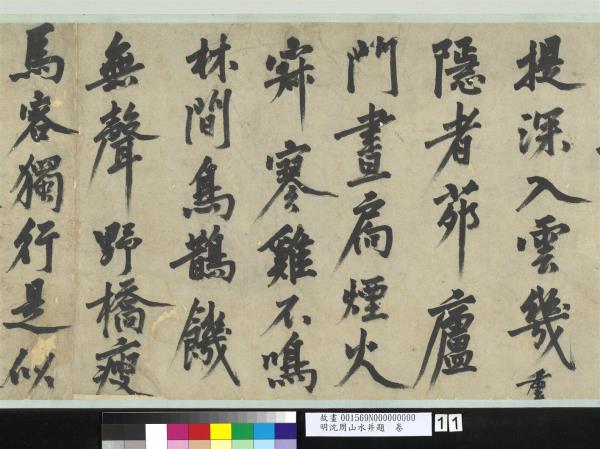 提深入雲幾重
隱者茆廬
門晝扃煙火
寂寒雞不鳴
林間鳥鵲饑
無聲野橋瘦
馬客獨行是似
故畫 001569N000000000
明沈周山水并題 卷
11